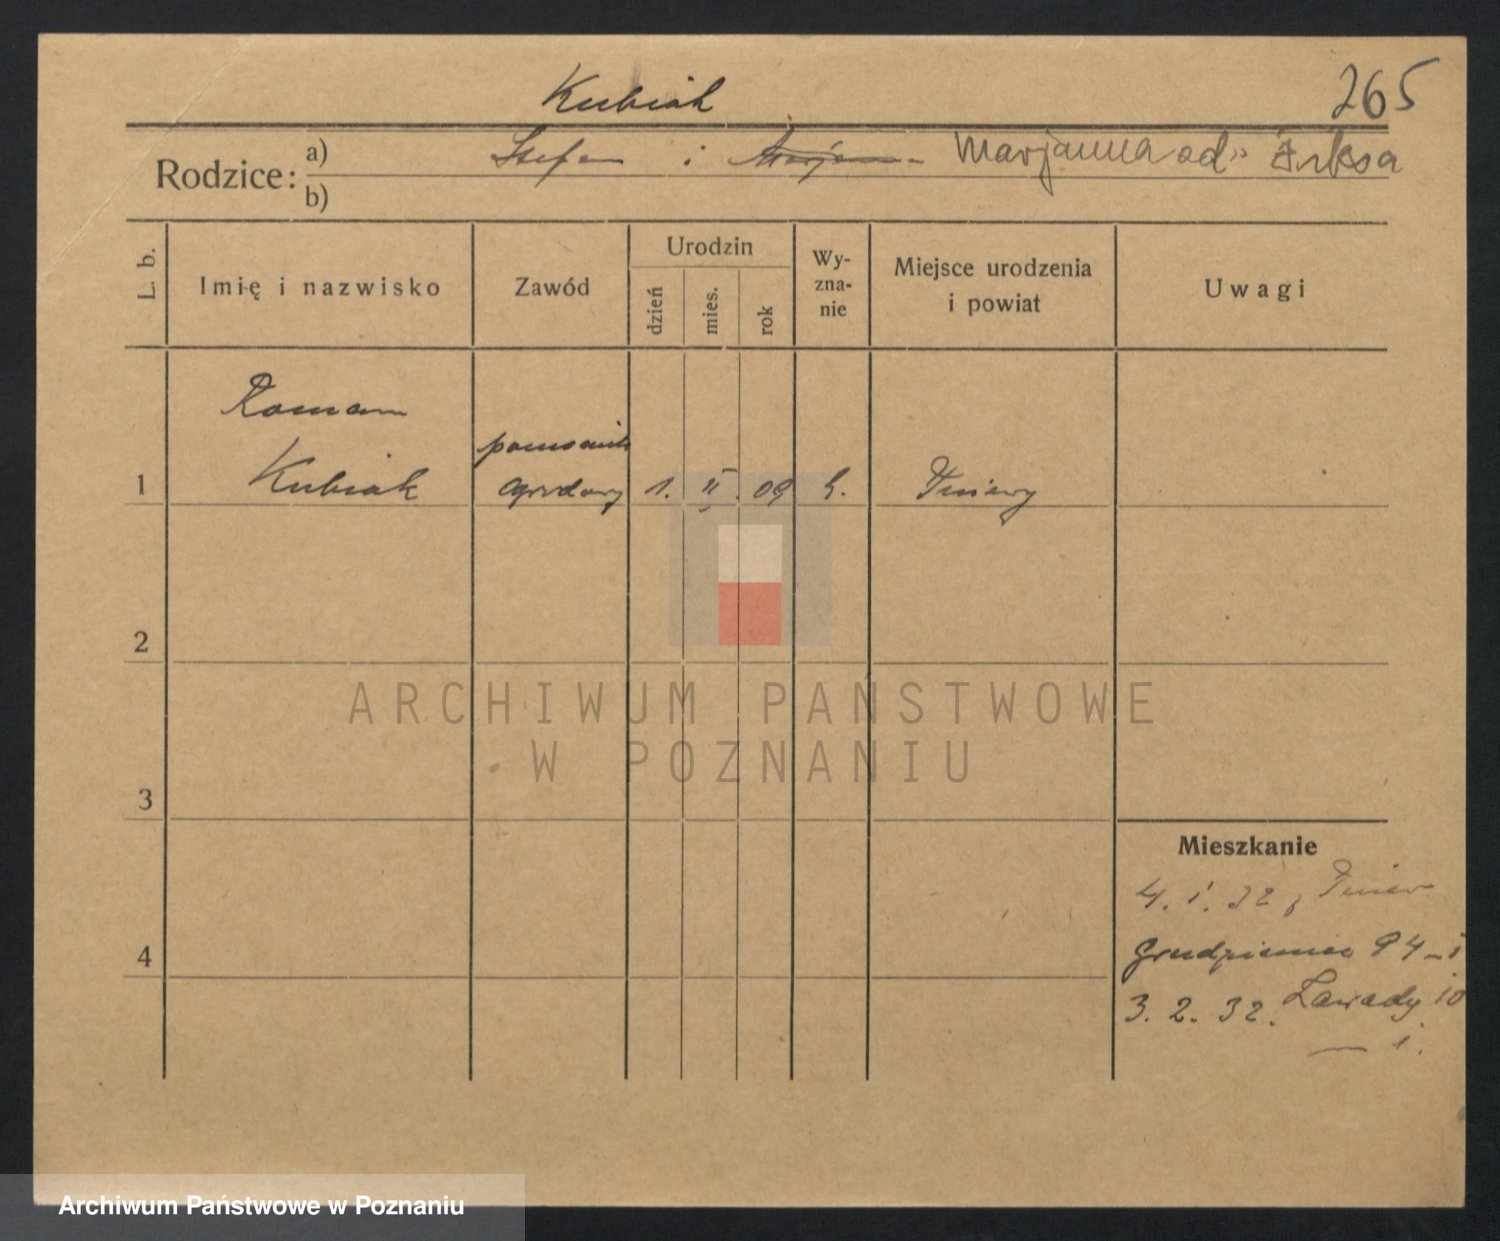 Kubiak
265
Rodzice:
a) Stefan i Marjanna Marjanna od
b)
L. b.
Imię i nazwisko
Zawód
Urodzin
dzień
mies.
rok
Wy-
zna-
nie
Miejsce urodzenia
i powiat
Uwagi
Roman
1 Kubiak
pomocnik
ogrodowy
1. II. 09
Pniewy
2
3
4
ARCHIWUM PAŃSTWOWE
W POZNANIU
Mieszkanie
4. 1. 32 z Pniew
Grudzieniec 94
3. 2. 32. Zawady 10
Archiwum Państwowe w Poznaniu